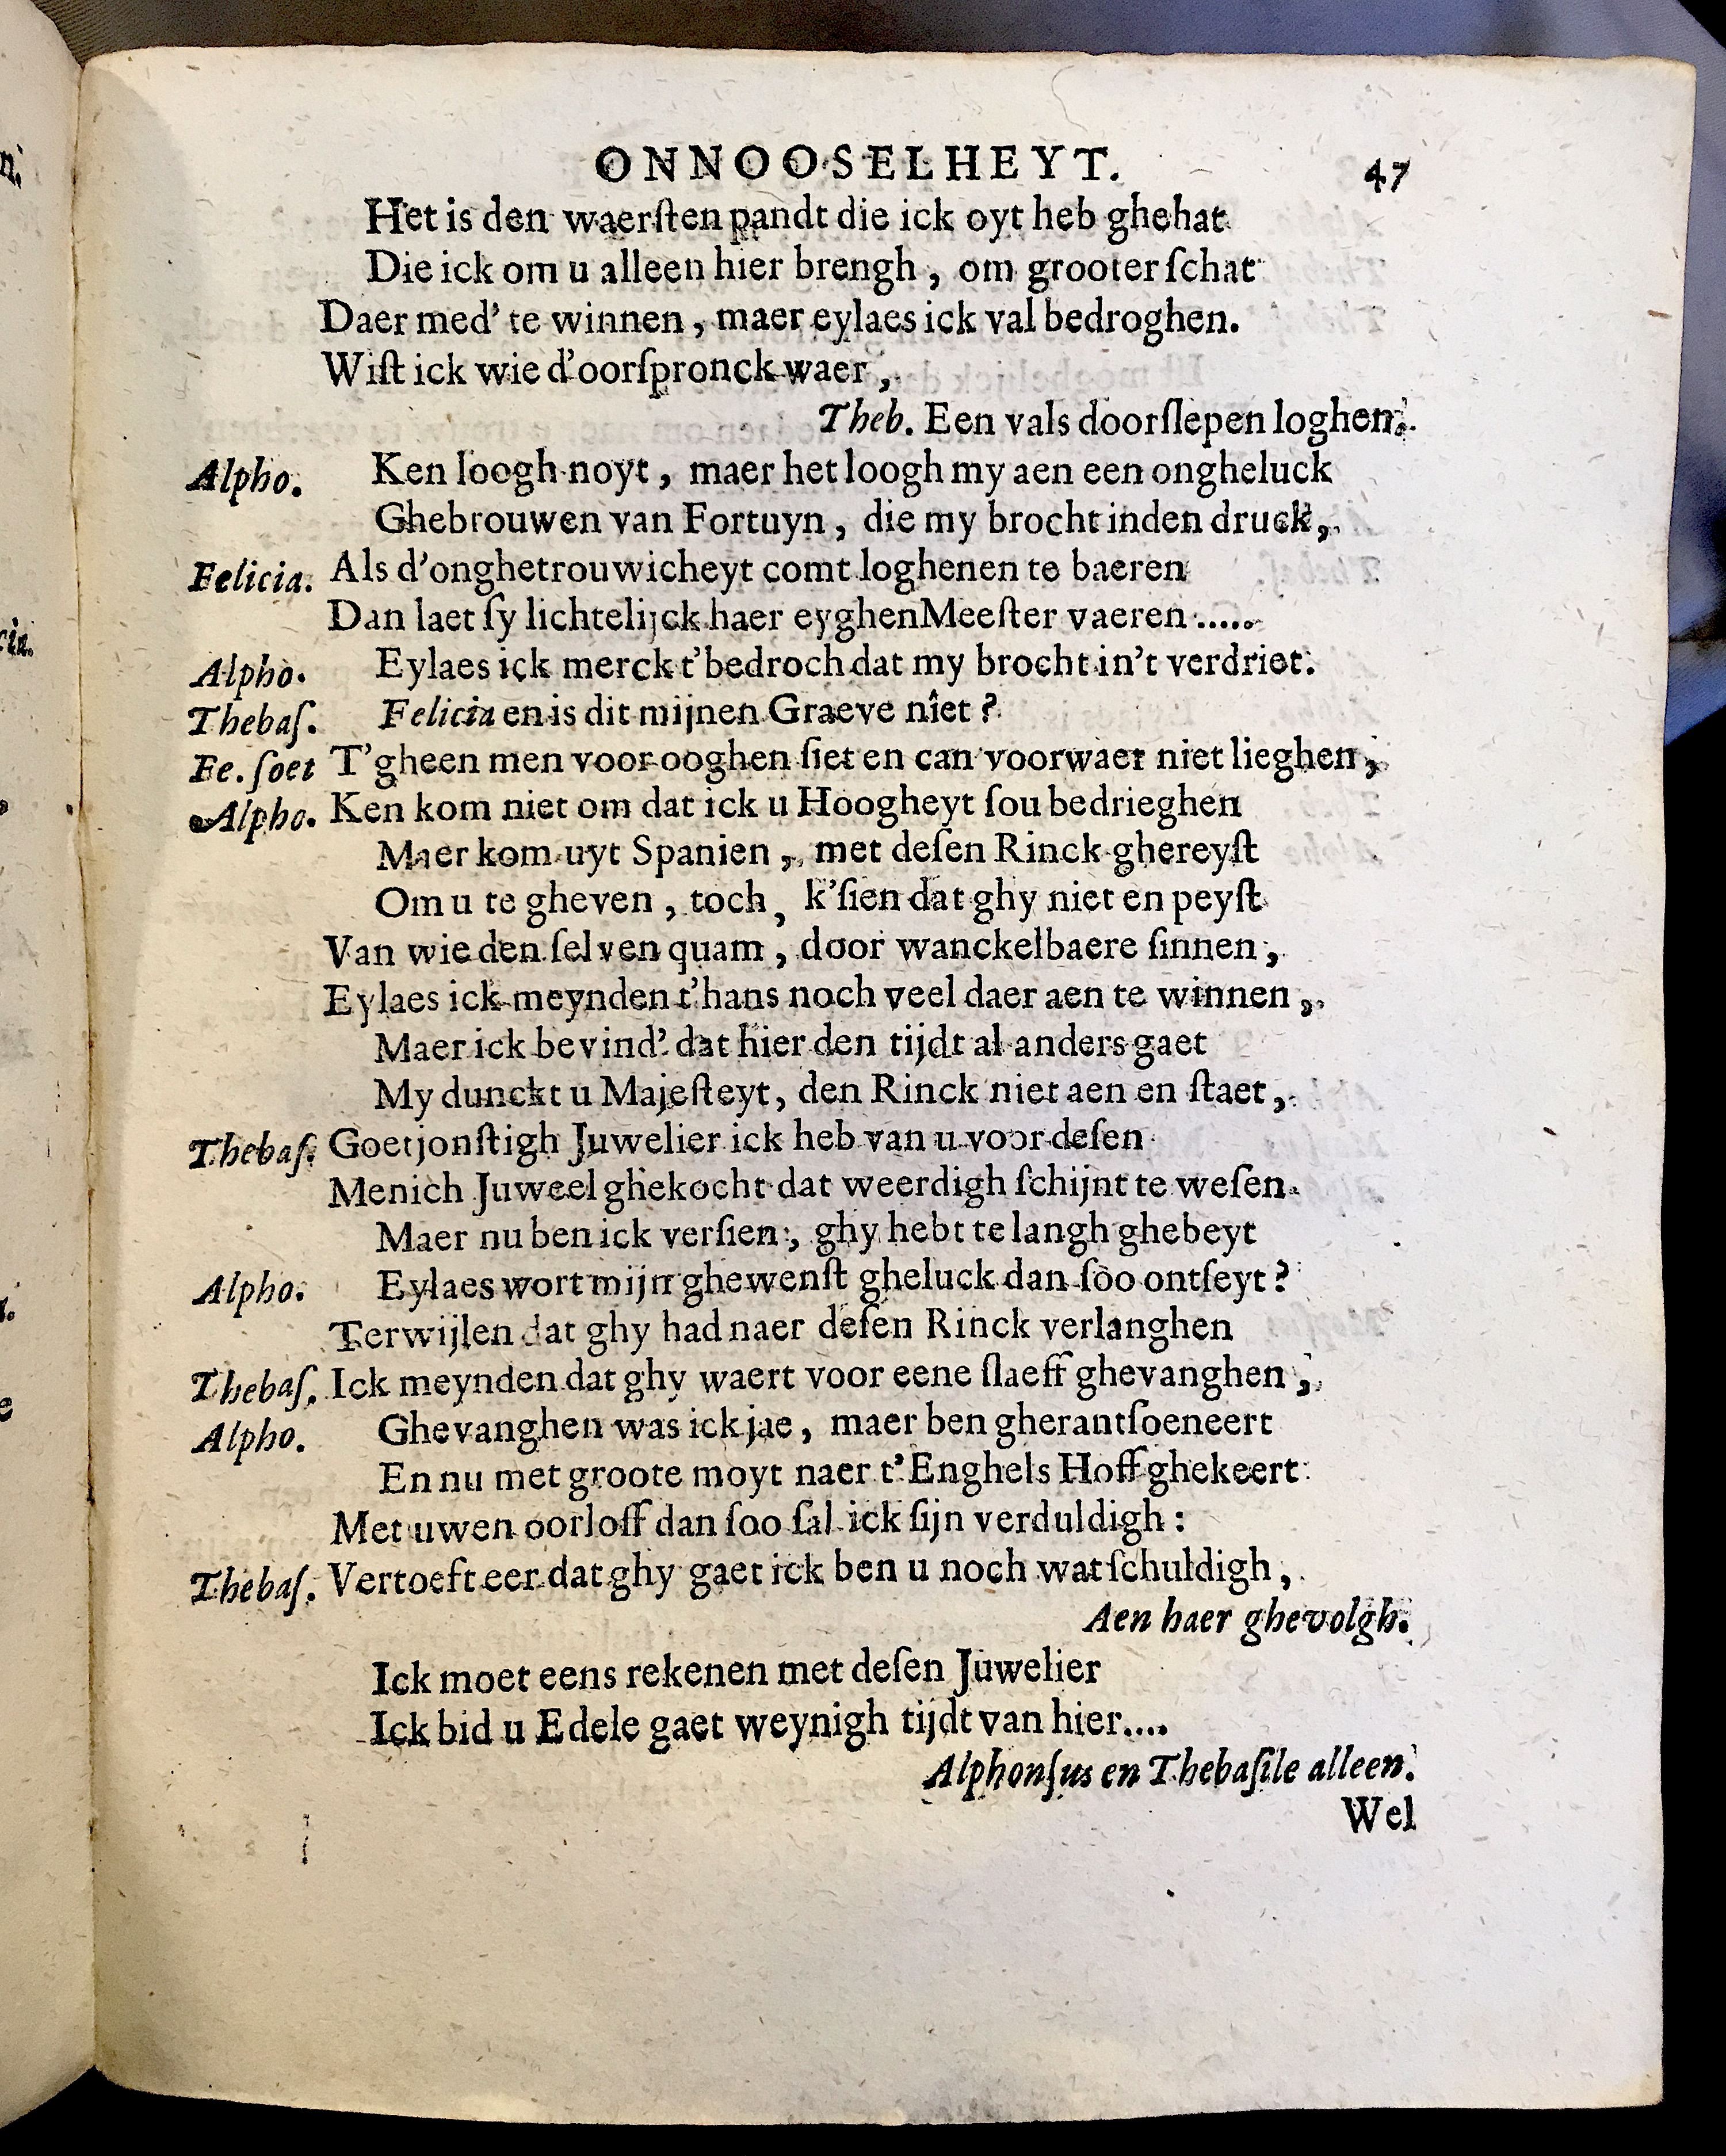 ONNOOSELHEYT. 47
Het is den waerſten pandt die ick oyt heb ghehat
Die ick om u alleen hier brengh, om grooter ſchat
Daer med' te winnen, maer eylaes ick val bedroghen.
Wiſt ick wie d'oorſpronck waer,
Theb. Een vals doorſlepen loghen.
Alpho. Ken loogh noyt, maer het loogh my aen een ongheluck
Ghebrouwen van Fortuyn, die my brocht inden druck,
Felicia. Als d'onghetrouwicheyt comt loghenen te baeren
Dan laet ſy lichtelijck haer eyghen Meeſter vaeren.....
Alpho. Eylaes ick merck t'bedroch dat my brocht in't verdriet.
Thebaſ. Felicia en is dit mijnen Graeve niet?
Fe. ſoet T'gheen men voor ooghen ſiet en can voorwaer niet lieghen,
Alpho. Ken kom niet om dat ick u Hoogheyt ſou bedrieghen
Maer kom uyt Spanien, met deſen Rinck ghereyſt
Om u te gheven, toch, k'ſien dat ghy niet en peyſt
Van wie den ſelven quam, door wanckelbaere ſinnen,
Eylaes ick meynden t'hans noch veel daer aen te winnen,
Maer ick bevind' dat hier den tijdt al anders gaet
My dunckt u Majeſteyt, den Rinck niet aen en ſtaet,
Thebaſ. Goetjonſtigh Juwelier ick heb van u voor deſen
Menich Juweel ghekocht dat weerdigh ſchijnt te weſen.
Maer nu ben ick verſien, ghy hebt te langh ghebeyt
Alpho. Eylaes wort mijn ghewenſt gheluck dan ſoo ontſeyt?
Terwijlen dat ghy had naer deſen Rinck verlanghen
Thebaſ. Ick meynden dat ghy waert voor eene ſlaeff ghevanghen,
Alpho. Ghevanghen was ick jae, maer ben gherantſoeneert
En nu met groote moyt naer t'Enghels Hoff ghekeert
Met uwen oorloff dan ſoo ſal ick ſijn verduldigh:
Thebaſ. Vertoeft eer dat ghy gaet ick ben u noch wat ſchuldigh,
Aen haer ghevolgh.
Ick moet eens rekenen met deſen Juwelier
Ick bid u Edele gaet weynigh tijdt van hier....
Alphonſus en Thebaſile alleen.
Wel